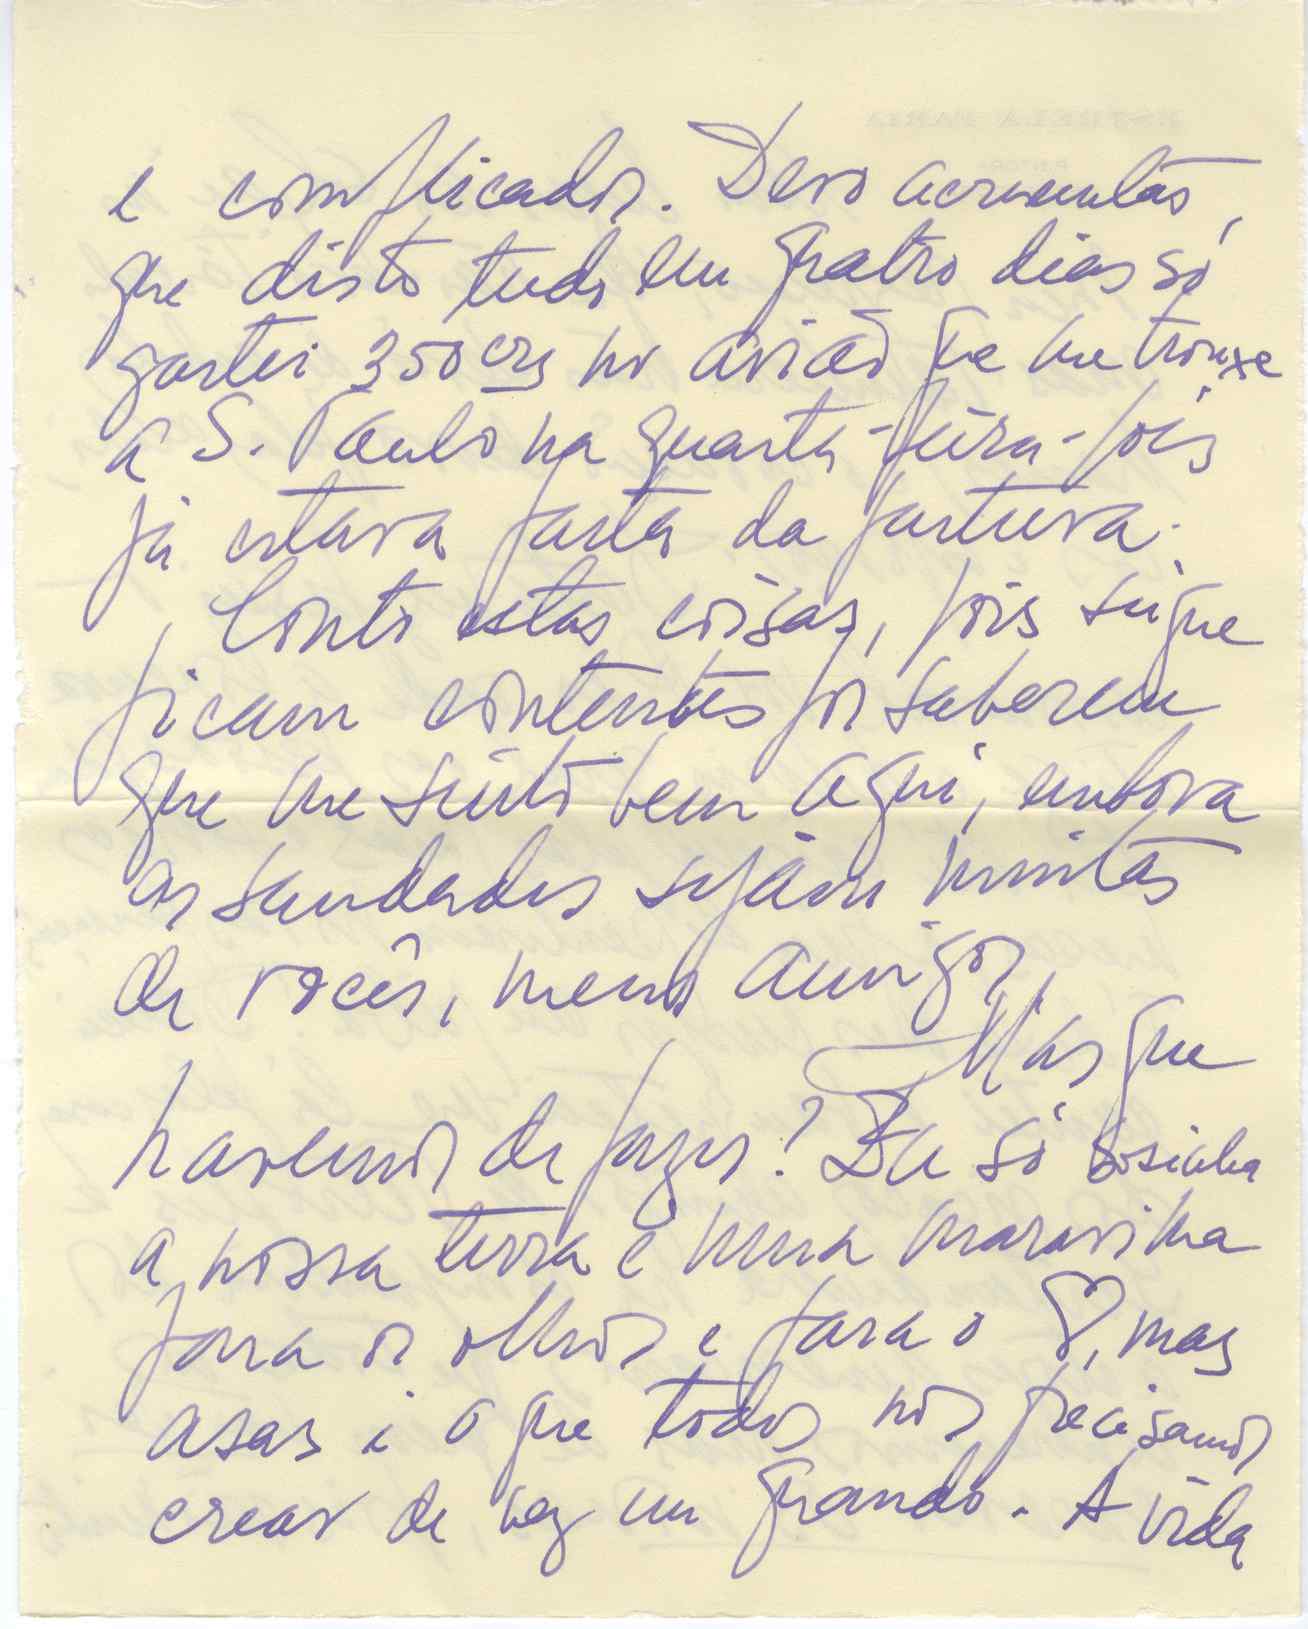 e complicados. Devo acrescentar,
que disto tudo em quatro dias só
gastei 350 crz no avião que me trouxe
a S. Paulo na quarta-feira - pois
já estava farta da fartura.
Conto estas coisas, pois sei que
ficam contentes por saberem
que me sinto bem aqui, embora
as saudades sejam muitas
de vocês, meus amigos,
Mas que
havemos de fazer? Eu só
a nossa terra é uma maravilha
para os olhos e para o ♡, mas
asas é o que todos nós precisamos
crear de vez em quando. A vida